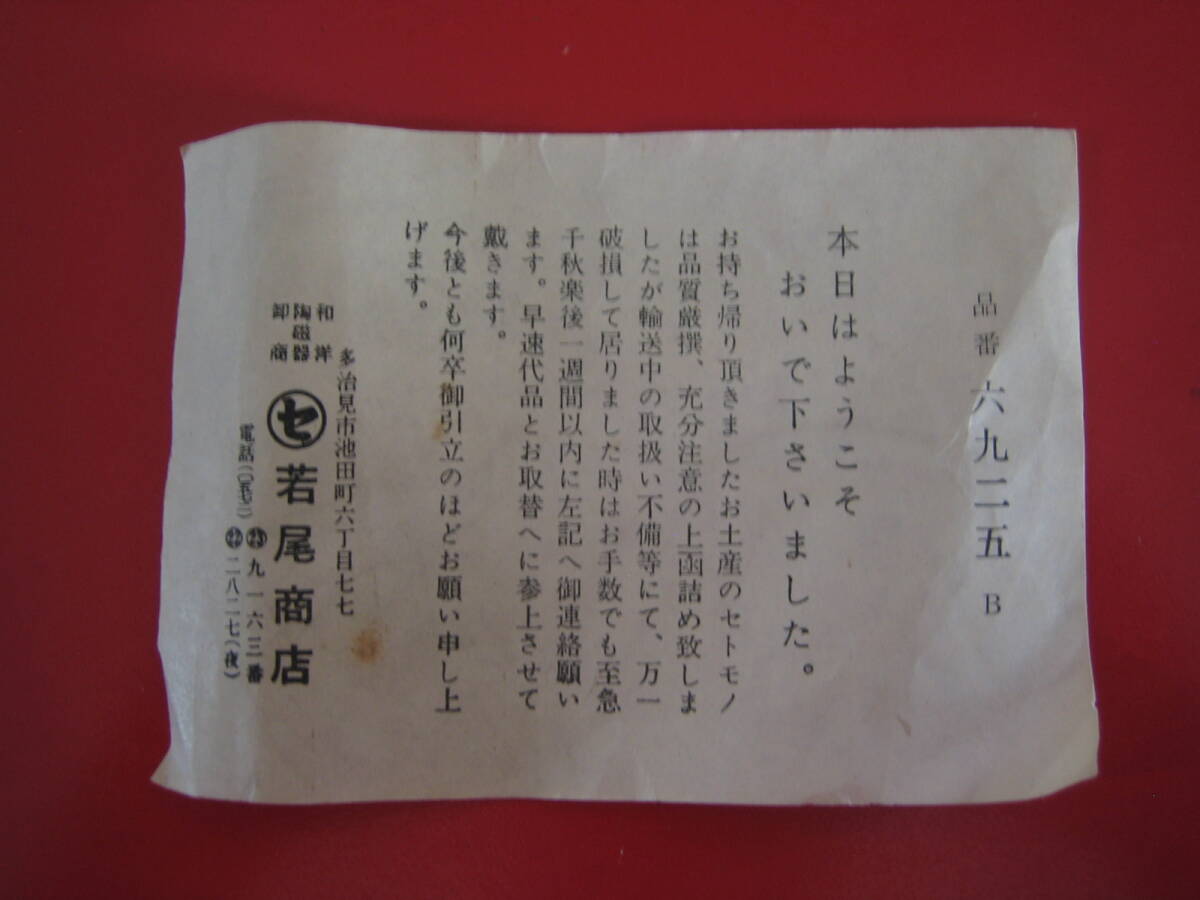 品番 六九二五 B
本日はようこそ
おいで下さいました。
お持ち帰り頂きましたお土産のセトモノ
は品質厳撰、充分注意の上函詰め致しま
したが輸送中の取扱い不備等にて、万一
破損して居りました時はお手数でも至急
千秋楽後一週間以内に左記へ御連絡願い
ます。早速代品とお取替へに参上させて
戴きます。
今後とも何卒御引立のほどお願い申し上
げます。
多治見市池田町六丁目七七
和洋
陶磁器
卸商
セ 若尾商店
電話(〇五七二)
九一六三番
二八二七(夜)